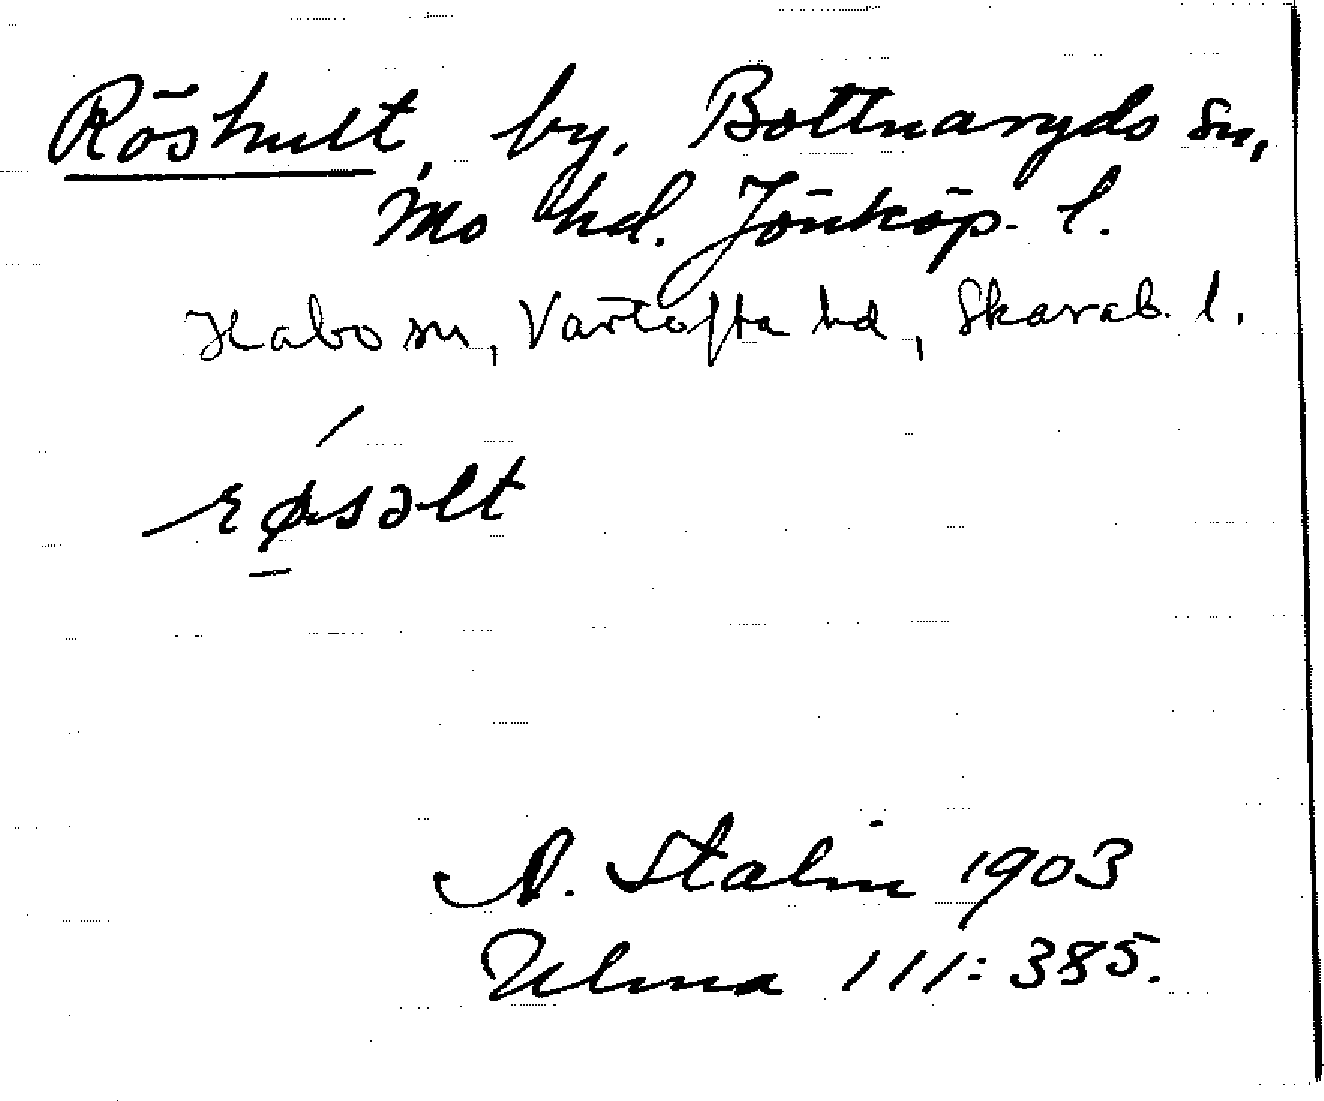 Röshult, by. Bottnaryds sn,
Mo hd. Jönköp. l.
Habo sn, Vartofta hd, Skarab. l.
røsəlt
A. Stalin 1903
Ulma 111:385.